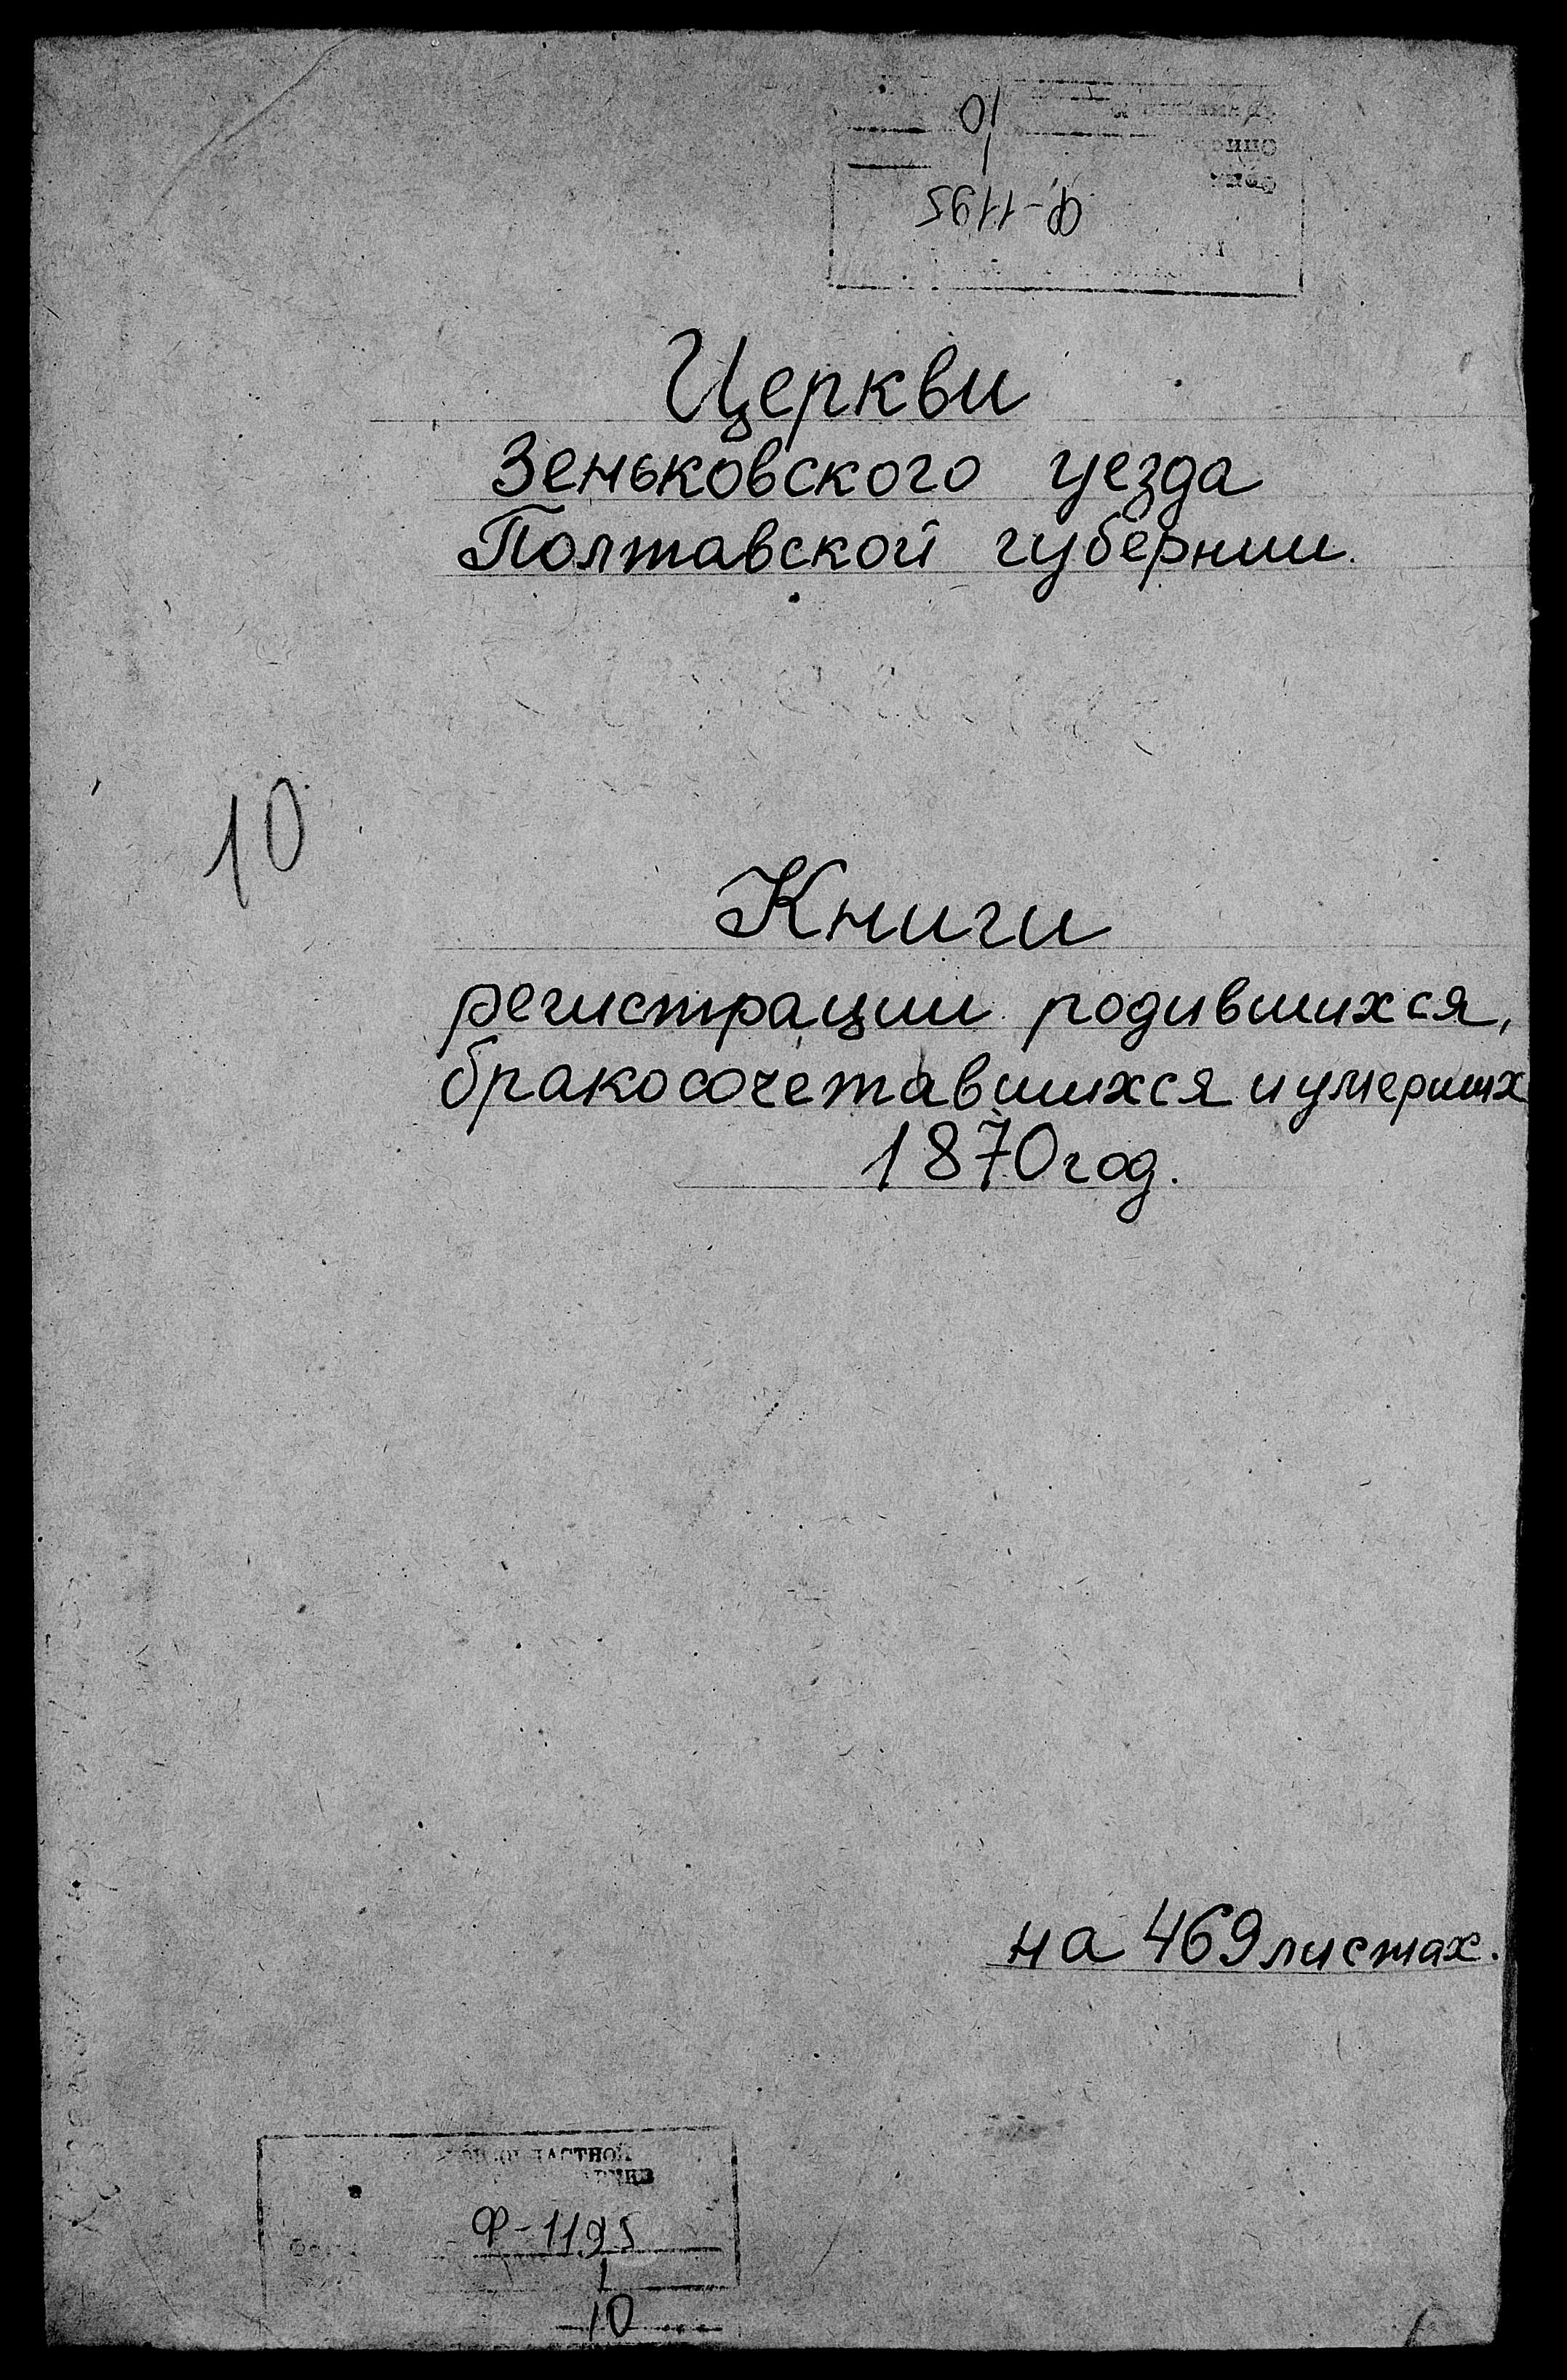 Ф-1195
1
10
Церкви
Зеньковского уезда
Полтавской губернии.
10
Книги
регистрации родившихся,
бракосочетавшихся и умерших
1870 год.
на 469 листах.
Ф-1195
1
10